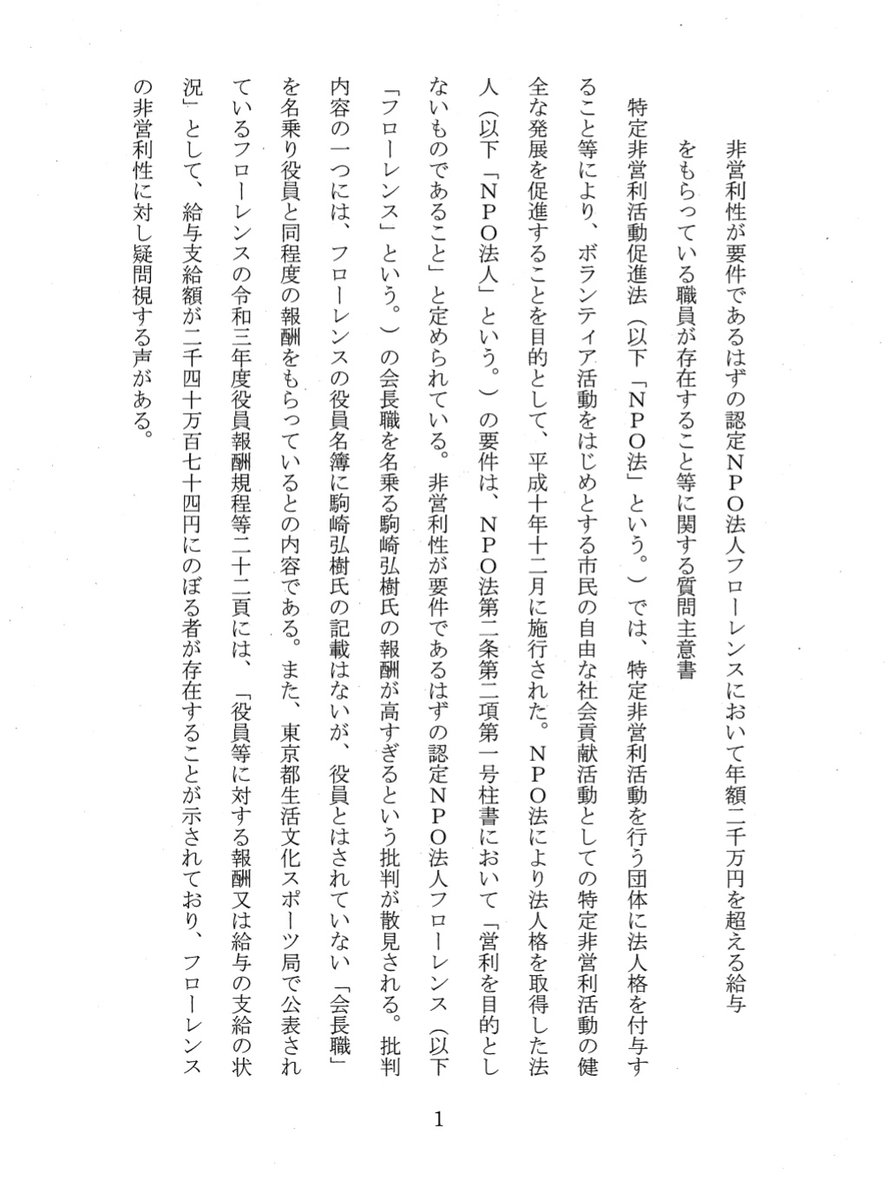 非営利性が要件であるはずの認定ＮＰＯ法人フローレンスにおいて年額二千万円を超える給与
をもらっている職員が存在すること等に関する質問主意書
特定非営利活動促進法（以下「ＮＰＯ法」という。）では、特定非営利活動を行う団体に法人格を付与す
ること等により、ボランティア活動をはじめとする市民の自由な社会貢献活動としての特定非営利活動の健
全な発展を促進することを目的として、平成十年十二月に施行された。ＮＰＯ法により法人格を取得した法
人（以下「ＮＰＯ法人」という。）の要件は、ＮＰＯ法第二条第二項第一号柱書において「営利を目的とし
ないものであること」と定められている。非営利性が要件であるはずの認定ＮＰＯ法人フローレンス（以下
「フローレンス」という。）の会長職を名乗る駒崎弘樹氏の報酬が高すぎるという批判が散見される。批判
内容の一つには、フローレンスの役員名簿に駒崎弘樹氏の記載はないが、役員とはされていない「会長職」
を名乗り役員と同程度の報酬をもらっているとの内容である。また、東京都生活文化スポーツ局で公表され
ているフローレンスの令和三年度役員報酬規程等二十二頁には、「役員等に対する報酬又は給与の支給の状
況」として、給与支給額が二千四十万百七十四円にのぼる者が存在することが示されており、フローレンス
の非営利性に対し疑問視する声がある。
1